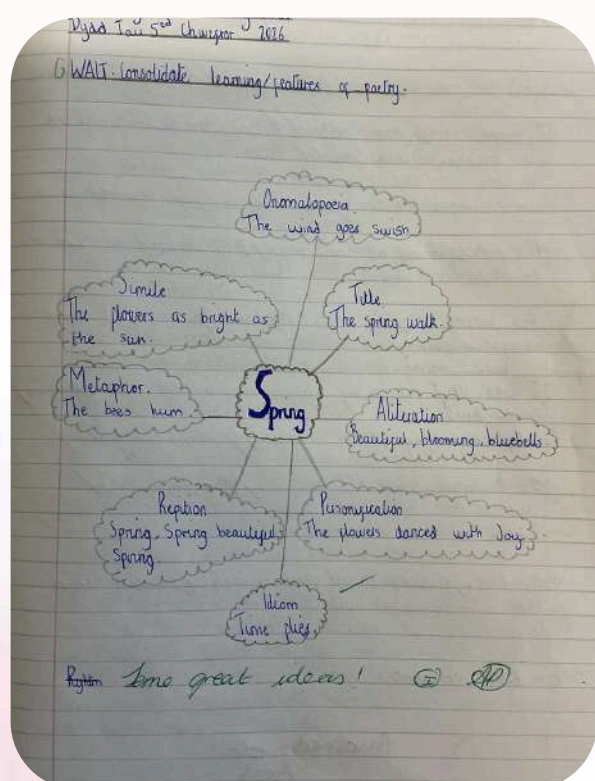 Dydd Iau 5ed Chwefror 2026
WALT: Consolidate learning/features of poetry.
Onomatopoeia
The wind goes swish
Simile
The flowers as bright as
the sun.
Title
The spring walk.
Metaphor.
The bees hum
Spring
Aliteration
Beautiful, blooming, bluebells.
Repition
Spring, Spring beautiful
Spring
Personification
The flowers danced with Joy.
Idiom
Time flies
Some great ideas!